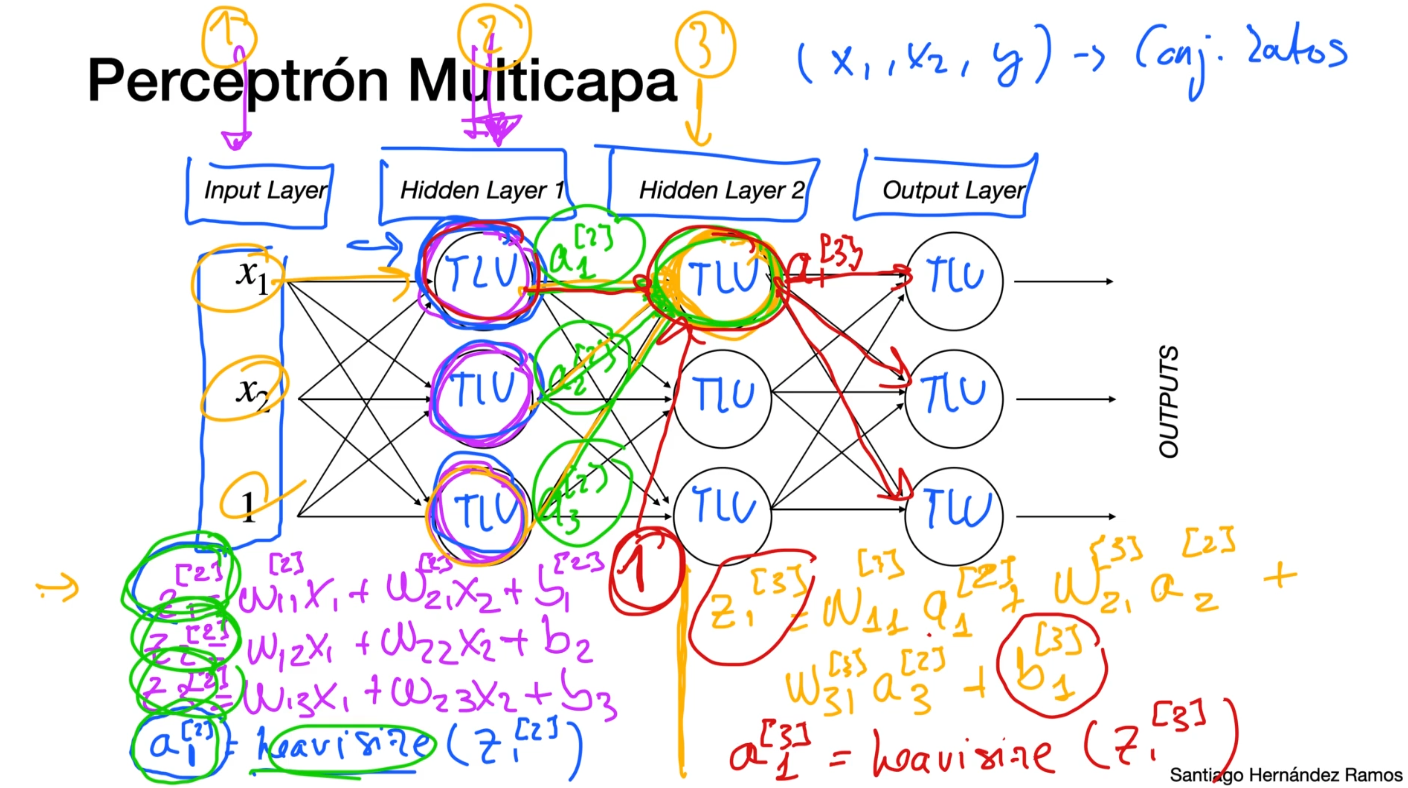 1 2 3
(x₁, x₂, y) → Conj. Datos
Perceptrón Multicapa
Input Layer Hidden Layer 1 Hidden Layer 2 Output Layer
x₁ TLU a₁^[2] TLU a₁^[3] TLU
x₂ TLU a₂^[2] TLU TLU
1 TLU a₃^[2] TLU TLU
OUTPUTS
1
→ z₁^[2] = w₁₁^[2] x₁ + w₂₁^[2] x₂ + b₁^[2]
z₂^[2] = w₁₂x₁ + w₂₂x₂ + b₂
z₃^[2] = w₁₃x₁ + w₂₃x₂ + b₃
a₁^[2] = heavisize (z₁^[2])
z₁^[3] = w₁₁^[3] a₁^[2] + w₂₁^[3] a₂^[2] +
w₃₁^[3] a₃^[2] + b₁^[3]
a₁^[3] = heavisize (z₁^[3])
Santiago Hernández Ramos